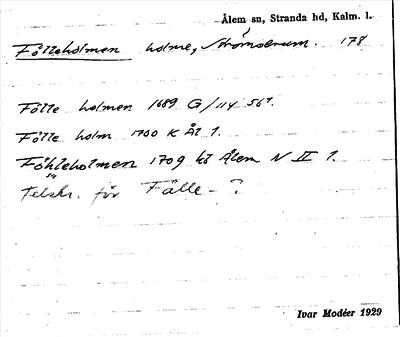 Ålem sn, Stranda hd, Kalm. l.
Fölleholmen holme, Strömsrum. 178
Fölle holmen 1689 G/114 561.
Fölle holm 1700 K Ål 1.
Föhleholmen 1709 kt Ålem N II 1.
Felskr. för Fälle- ?
Ivar Modéer 1929